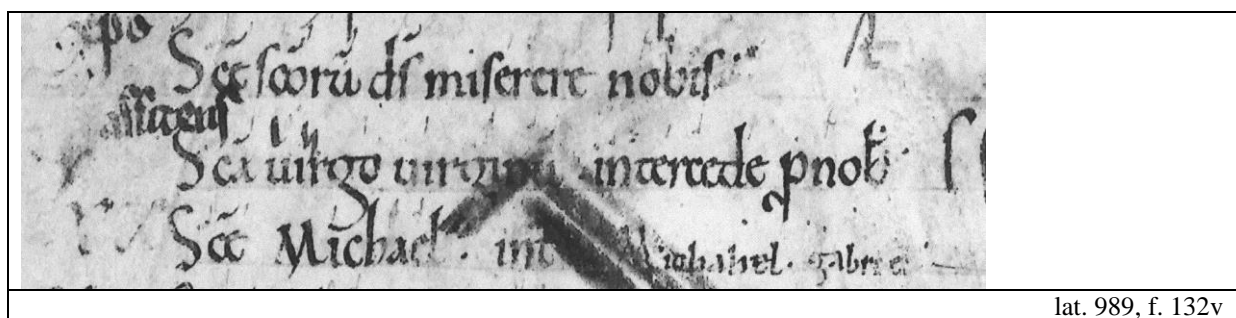 Sc̄e sc̄orū ds̄ miserere nobis
Sc̄a uirgo uirginū intercede p nob̄
Sc̄e Michael. int Michahel. gabrie
lat. 989, f. 132v